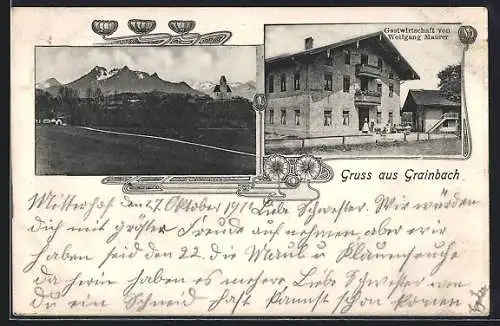 Gastwirtschaft von
Wolfgang Maurer.
Gruss aus Grainbach.
Mitterhof den 27. Oktober 1911 Liebe Schwester. Wir würden
dich mit größter Freude aufnehmen, aber wir
haben seid den 22. die Maul u Klauenseuche
da herin haben es mehere Liebe Schwester wen
du ein Schneid hast kannst schon komen